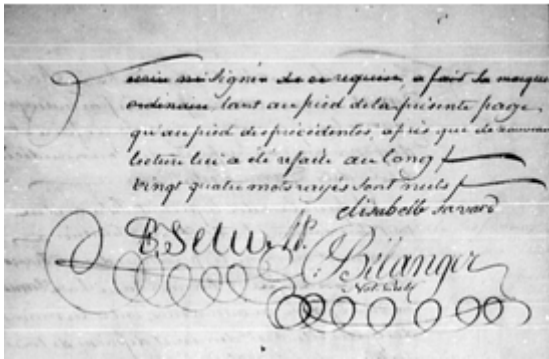 écrire ni signer de ce requise, a fait sa marque
ordinaire tant au pied de la présente page
qu'au pied des précédentes, après que de nouveau
lecture lui a été refaite au long
vingt quatre mots rayés sont nuls
elisabelle savard
B. Tetu N.P.
C. Bélanger
Not. Pub.